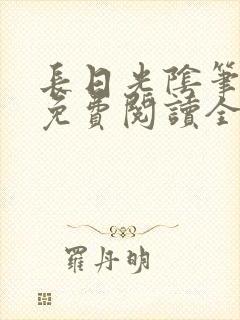 長日光陰筆
免費閱讀全
羅丹明